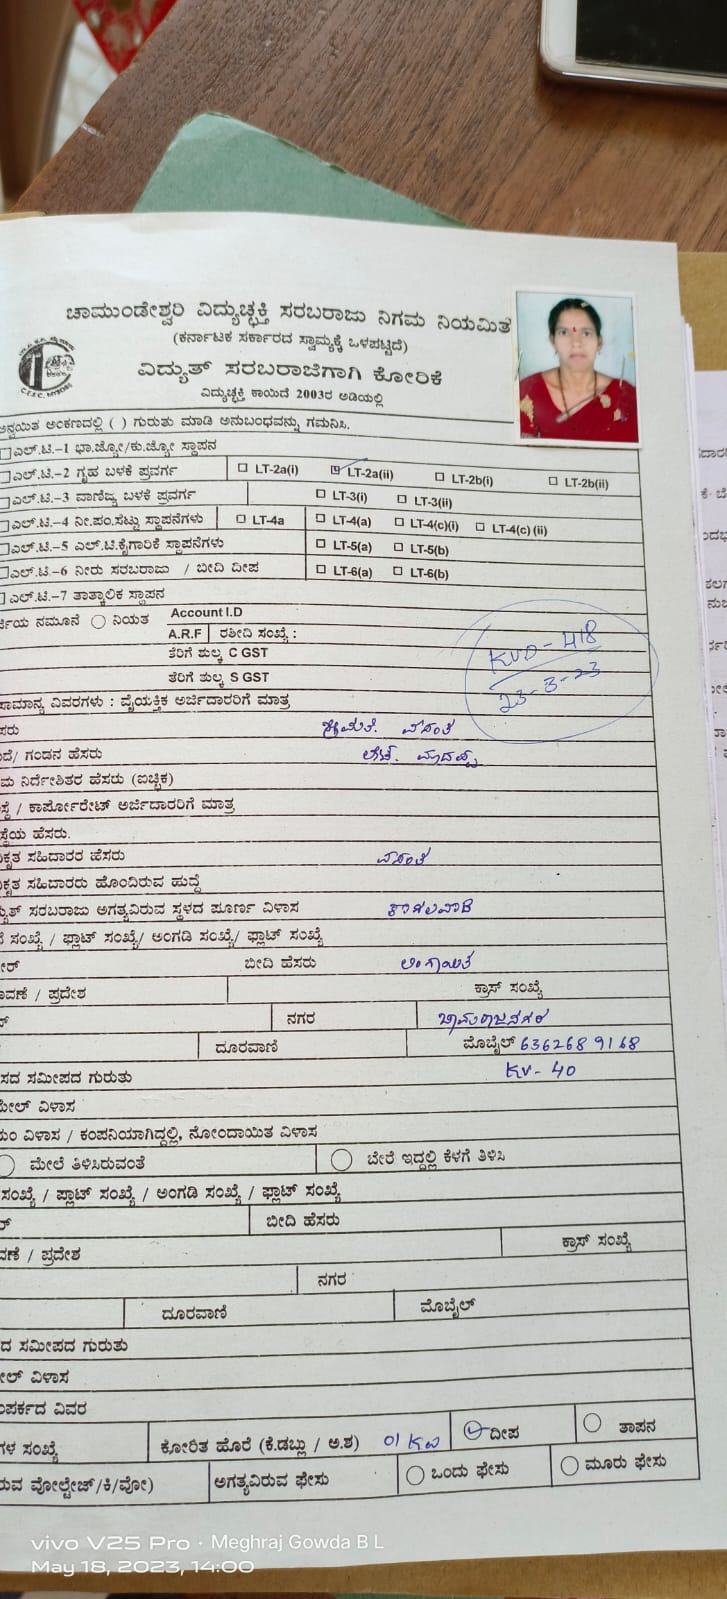 ಚಾಮುಂಡೇಶ್ವರಿ ವಿದ್ಯುಚ್ಛಕ್ತಿ ಸರಬರಾಜು ನಿಗಮ ನಿಯಮಿತ
(ಕರ್ನಾಟಕ ಸರ್ಕಾರದ ಸ್ವಾಮ್ಯಕ್ಕೆ ಒಳಪಟ್ಟಿದೆ)
ವಿದ್ಯುತ್ ಸರಬರಾಜಿಗಾಗಿ ಕೋರಿಕೆ
ವಿದ್ಯುಚ್ಛಕ್ತಿ ಕಾಯಿದೆ 2003ರ ಅಡಿಯಲ್ಲಿ
C.E.S.C, MYSORE
ಅನ್ವಯಿತ ಅಂಕಣದಲ್ಲಿ ( ) ಗುರುತು ಮಾಡಿ ಅನುಬಂಧವನ್ನು ಗಮನಿಸಿ.
ಎಲ್.ಟಿ.-1 ಭಾ.ಜ್ಯೋ/ಕು.ಜ್ಯೋ ಸ್ಥಾಪನ
ಎಲ್.ಟಿ.-2 ಗೃಹ ಬಳಕೆ ಪ್ರವರ್ಗ LT-2a(i) LT-2a(ii) LT-2b(i) LT-2b(ii)
ಎಲ್.ಟಿ.-3 ವಾಣಿಜ್ಯ ಬಳಕೆ ಪ್ರವರ್ಗ LT-3(i) LT-3(ii)
ಎಲ್.ಟಿ.-4 ನೀ.ಪಂ.ಸೆಟ್ಟು ಸ್ಥಾಪನೆಗಳು LT-4a LT-4(a) LT-4(c)(i) LT-4(c)(ii)
ಎಲ್.ಟಿ.-5 ಎಲ್.ಟಿ.ಕೈಗಾರಿಕೆ ಸ್ಥಾಪನೆಗಳು LT-5(a) LT-5(b)
ಎಲ್.ಟಿ.-6 ನೀರು ಸರಬರಾಜು / ಬೀದಿ ದೀಪ LT-6(a) LT-6(b)
ಎಲ್.ಟಿ.-7 ತಾತ್ಕಾಲಿಕ ಸ್ಥಾಪನ
ನಮೂನೆ ನಿಯತ Account I.D
A.R.F ರಶೀದಿ ಸಂಖ್ಯೆ :
ತೆರಿಗೆ ಶುಲ್ಕ C GST
KVD-418
ತೆರಿಗೆ ಶುಲ್ಕ S GST
23-3-23
ಸಾಮಾನ್ಯ ವಿವರಗಳು : ವೈಯಕ್ತಿಕ ಅರ್ಜಿದಾರರಿಗೆ ಮಾತ್ರ
ಶ್ರೀಮತಿ. ವಸಂತ
ಗಂಡನ ಹೆಸರು ಲೇಟ್. ಮಾದಪ್ಪ
ನಿರ್ದೇಶಿತರ ಹೆಸರು (ಐಚ್ಛಿಕ)
/ ಕಾರ್ಪೋರೇಟ್ ಅರ್ಜಿದಾರರಿಗೆ ಮಾತ್ರ
ಹೆಸರು.
ಸಹಿದಾರರ ಹೆಸರು ವಸಂತ
ಸಹಿದಾರರು ಹೊಂದಿರುವ ಹುದ್ದೆ
ಸರಬರಾಜು ಅಗತ್ಯವಿರುವ ಸ್ಥಳದ ಪೂರ್ಣ ವಿಳಾಸ ಕಾಗಲವಾಡಿ
ಸಂಖ್ಯೆ / ಫ್ಲಾಟ್ ಸಂಖ್ಯೆ/ ಅಂಗಡಿ ಸಂಖ್ಯೆ/ ಫ್ಲಾಟ್ ಸಂಖ್ಯೆ
ಬೀದಿ ಹೆಸರು ಲಿಂಗಾಯಿತ
/ ಪ್ರದೇಶ ಕ್ರಾಸ್ ಸಂಖ್ಯೆ
ನಗರ ಚಾಮರಾಜನಗರ
ದೂರವಾಣಿ ಮೊಬೈಲ್ 6362689168
ಸಮೀಪದ ಗುರುತು KV-40
ವಿಳಾಸ
ವಿಳಾಸ / ಕಂಪನಿಯಾಗಿದ್ದಲ್ಲಿ, ನೋಂದಾಯಿತ ವಿಳಾಸ
ಮೇಲೆ ತಿಳಿಸಿರುವಂತೆ ಬೇರೆ ಇದ್ದಲ್ಲಿ ಕೆಳಗೆ ತಿಳಿಸಿ
ಸಂಖ್ಯೆ / ಪ್ಲಾಟ್ ಸಂಖ್ಯೆ / ಅಂಗಡಿ ಸಂಖ್ಯೆ / ಫ್ಲಾಟ್ ಸಂಖ್ಯೆ
ಬೀದಿ ಹೆಸರು
/ ಪ್ರದೇಶ ಕ್ರಾಸ್ ಸಂಖ್ಯೆ
ನಗರ
ದೂರವಾಣಿ ಮೊಬೈಲ್
ಸಮೀಪದ ಗುರುತು
ವಿಳಾಸ
ವಿವರ
ಸಂಖ್ಯೆ ಕೋರಿತ ಹೊರೆ (ಕೆ.ಡಬ್ಲು / ಅ.ಶ) 01 KW ದೀಪ ತಾಪನ
ವೋಲ್ಟೇಜ್/ಕಿ/ವೋ) ಅಗತ್ಯವಿರುವ ಫೇಸು ಒಂದು ಫೇಸು ಮೂರು ಫೇಸು
vivo V25 Pro · Meghraj Gowda B L
May 18, 2023, 14:00